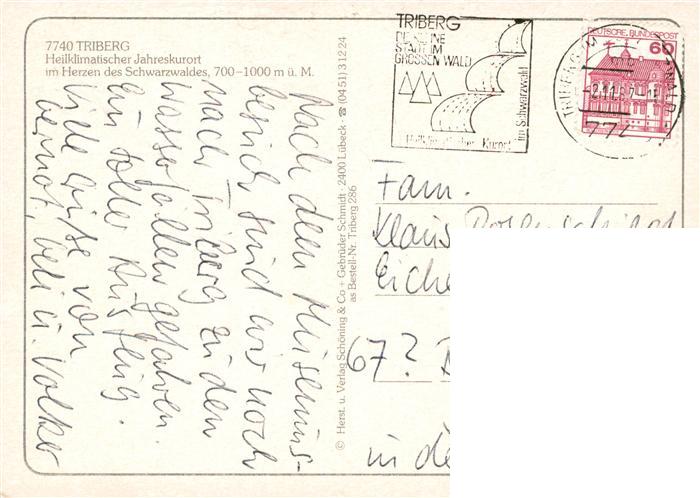 7740 TRIBERG
Heilklimatischer Jahreskurort
im Herzen des Schwarzwaldes, 700-1000 m ü. M.
Nach dem Museums-
besuch sind wir noch
nach Triberg zu den
Wasserfällen gefahren.
Ein toller Ausflug.
Viele Grüße von
u. Volker
© Herst. u. Verlag Schöning & Co + Gebrüder Schmidt · 2400 Lübeck · ☎ (04 51) 3 12 24
as Bestell-Nr. Triberg 286
TRIBERG
DIE KLEINE
STADT IM
GROSSEN WALD
Heilklimatischer Kurort
im Schwarzwald
DEUTSCHE BUNDESPOST
60
TRIBERG
Fam.
Klaus
Eiche
67?
in de